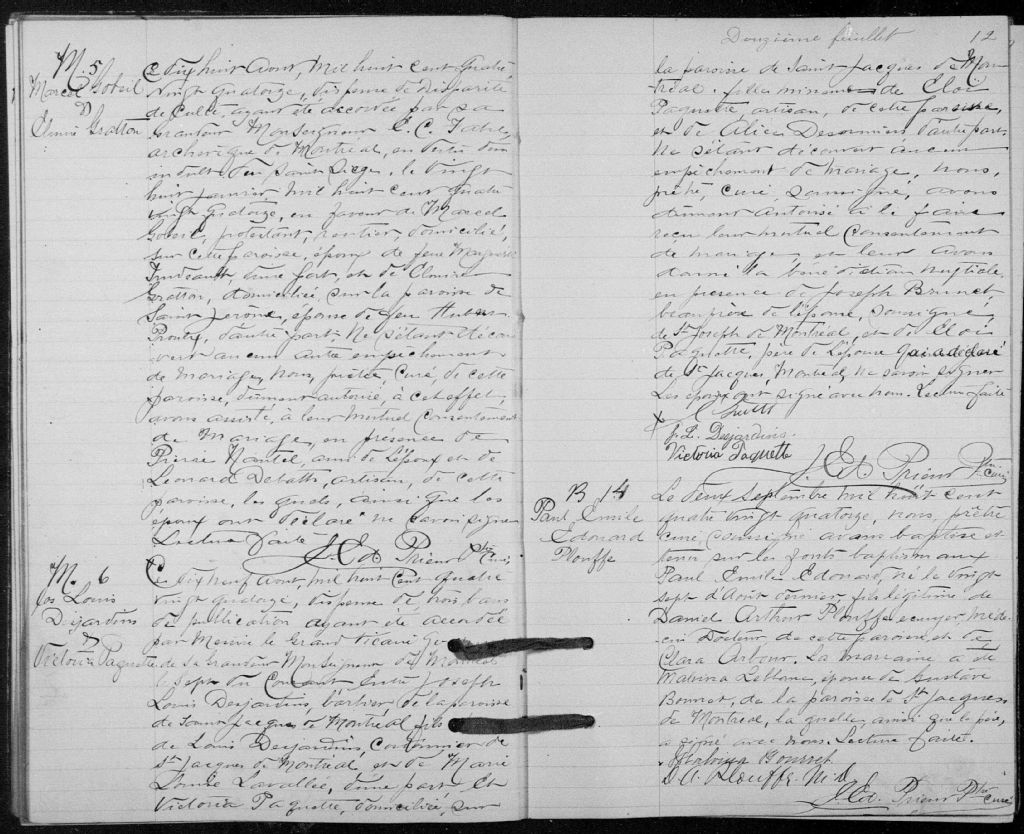 M. 5
Marcel Gobeil
&
Elmire Gratton
Le dix huit Aout, mil huit cent quatre
vingt quatorze, dispense de disparité
de Culte, ayant été accordée par sa
Grandeur Monseigneur E. C. Fabre,
archevêque de Montréal, en vertu d'un
indult du Saint Siège, le vingt
huit janvier mil huit cent quatre
vingt quatorze, en faveur de Marcel
Gobeil, protestant, rentier, domicilié,
sur cette paroisse, époux de feue Marguerite
Trudeault, d'une part, et de
Gratton, domiciliée, sur la paroisse de
Saint Jerome, épouse de feu Hubert
Proulx, d'autre part; Ne s'étant décou
vert aucun autre empêchement
de mariage, nous, prêtre, curé, de cette
paroisse, dûment autorisé, à cet effet,
avons assisté, à leur mutuel consentement
de Mariage, en présence de
Pierre Nantel, ami de l'époux et de
Leonard Debatts, artisan, de cette
paroisse, les quels, ainsi que les
époux ont déclaré ne savoir signer
Lecture faite
J. Ed. Prieur Ptre curé
M. 6
Jos Louis
Desjardins
&
Victoria Paquette
Le dix neuf Aout, mil huit cent quatre
vingt quatorze, dispense de trois bans
de publication ayant été accordée
par Messire le Grand Vicaire
de Sa Grandeur Monseigneur de Montréal
le sept du Courant entre Joseph
Louis Desjardins, barbier de la paroisse
de Saint Jacques de Montréal fils
de Louis Desjardins, Cordonnier de
St Jacques de Montréal et de Marie
Louise Lavallée, d'une part, Et
Victoria Paquette, domiciliée, sur
Douzième feuillet 12
la paroisse de Saint Jacques de Mon
tréal, fille mineure de Cloi
Paquette, artisan, de cette paroisse,
et de Alice Desormiers d'autre part,
Ne s'étant découvert aucun
empêchement de mariage, nous,
prêtre, curé, soussigné, avons
dûment autorisé à le faire
reçu leur mutuel Consentement
de mariage, et leur avons
donné la bénédiction nuptiale,
en présence de Joseph Brunet,
beau-frère de l'époux, soussigné,
de St Joseph de Montréal, et de Cloi
Paquette, père de l'épouse qui a déclaré
de St Jacques, Montréal, ne savoir signer
Les époux ont signé avec nous. Lecture faite
J. L. Desjardins.
Victoria Paquette
J. Ed Prieur Ptre curé
B 14
Paul Emile
Edouard
Plouffe
Le deux septembre mil huit cent
quatre vingt quatorze, nous, prêtre
curé, soussigné avons baptisé et
tenu sur les fonts baptismaux
Paul Emile Edouard, né le vingt
sept d'Aout dernier, fils légitime de
Daniel Arthur Plouffe ecuyer, méde
cin Docteur de cette paroisse, et de
Clara Arbour. La marraine a été
Malvina Leblanc, épouse de Gustave
Bourret, de la paroisse de St Jacques
de Montréal, la quelle, ainsi que le père,
a signé avec nous. Lecture faite.
Malvina Bourret
D A Plouffe M.d
J. Ed. Prieur Ptre curé